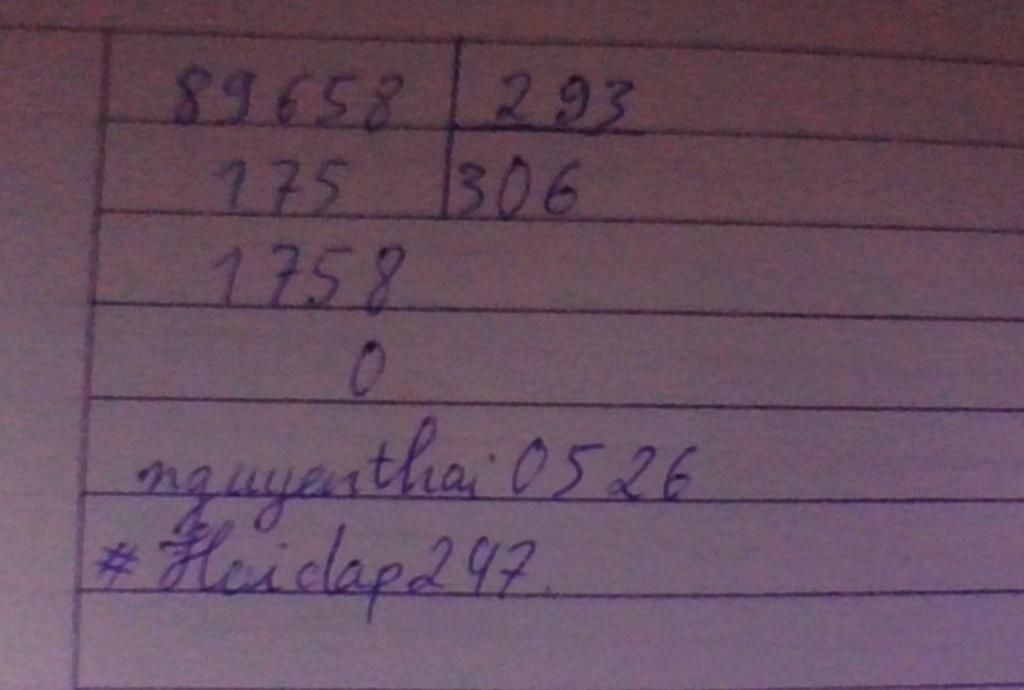 89658 293
175 306
1758
0
nguyenthai0526
#Hoidap247.